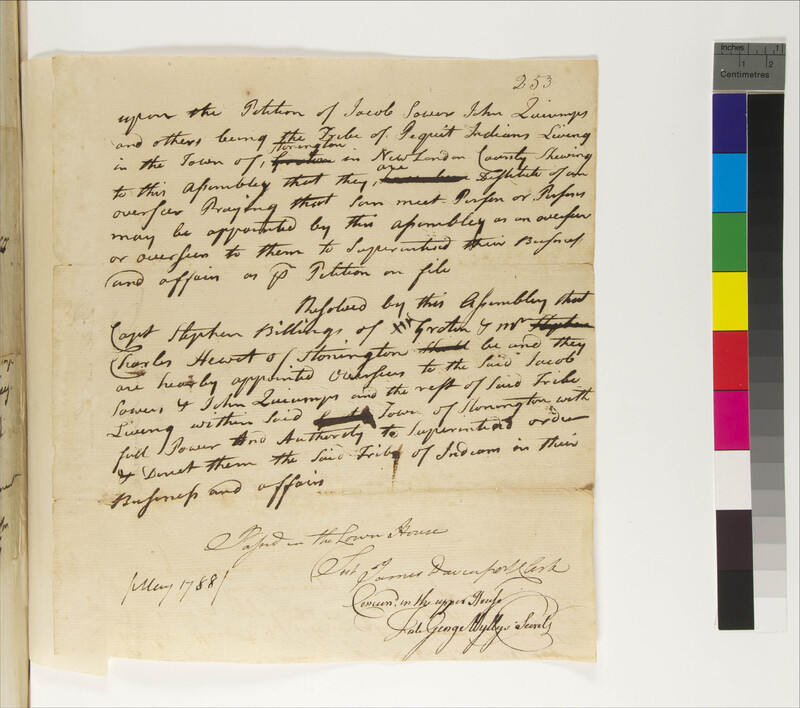 253
upon the Petition of Jacob Sower John Quiumps
and others being the Tribe of Pequit Indians Living
in the Town of Stonington in New London County Shewing
to this Assembly that they are Destitute of an
overseer Praying that Som meet Person or Persons
may be appointed by this Assembly as an overseer
or overseers to them to Superintind their Busness
and affairs as pr Petition on file
Resolved by this Assembly that
Capt Stephen Billings of Groton & Mr
Charles Hewet of Stonington shall be and they
are hearby appointed Overseers to the Said Jacob
Sowers & John Quiumps and the rest of Said Tribe
Living within Said Town of Stonington with
full Power And Authority to Superintind order
& Direct them the Said Tribe of Indians in their
Busness and affairs
Passd in the Lower House
Test James Davenport Clerk
[May 1788]
Concurrd in the upper House
Teste George Wyllys Secrety
Inches 1
1 2
Centimetres